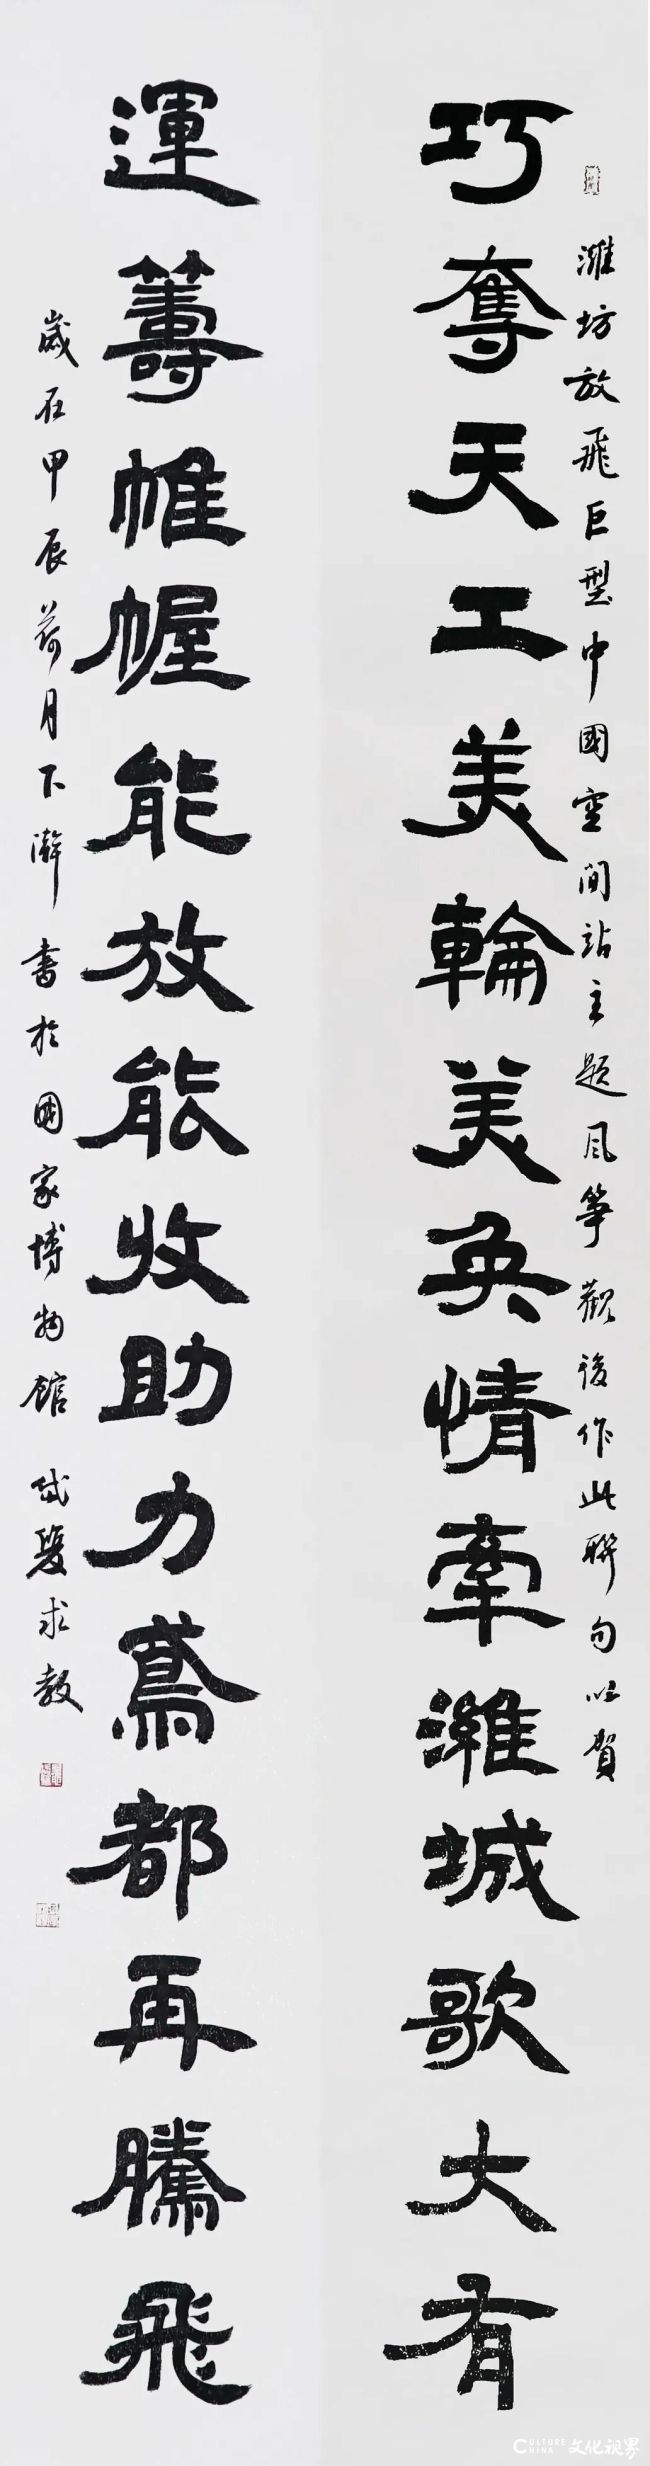 濰坊放飛巨型中國空间站主题风筝觀後作此聯句以賀
巧奪天工美輪美奂情牽濰城歌大有
運籌帷幄能放能收助力鳶都再騰飛
歲在甲辰荷月下澣書於國家博物館 求教
CULTURE CHINA 文化视界